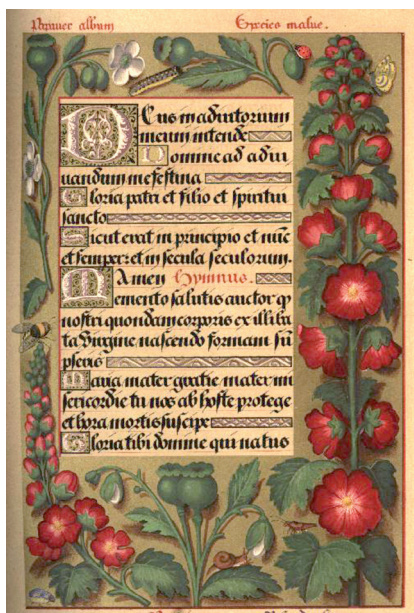 Papaver album
Species malue.
Deus in adiutorium
meum intende
Domine ad adiu
uandum me festina
Gloria patri et filio et spiritui
sancto
Sicut erat in principio et nūc
et semper: et in secula seculorum.
Amen Hymnus.
Memento salutis auctor q̄
nostri quondam corporis ex illiba
ta Virgine nascendo formam sū
pseris
Maria mater gratie mater mi
sericordie tu nos ab hoste protege
et hora mortis suscipe
Gloria tibi domine qui natus